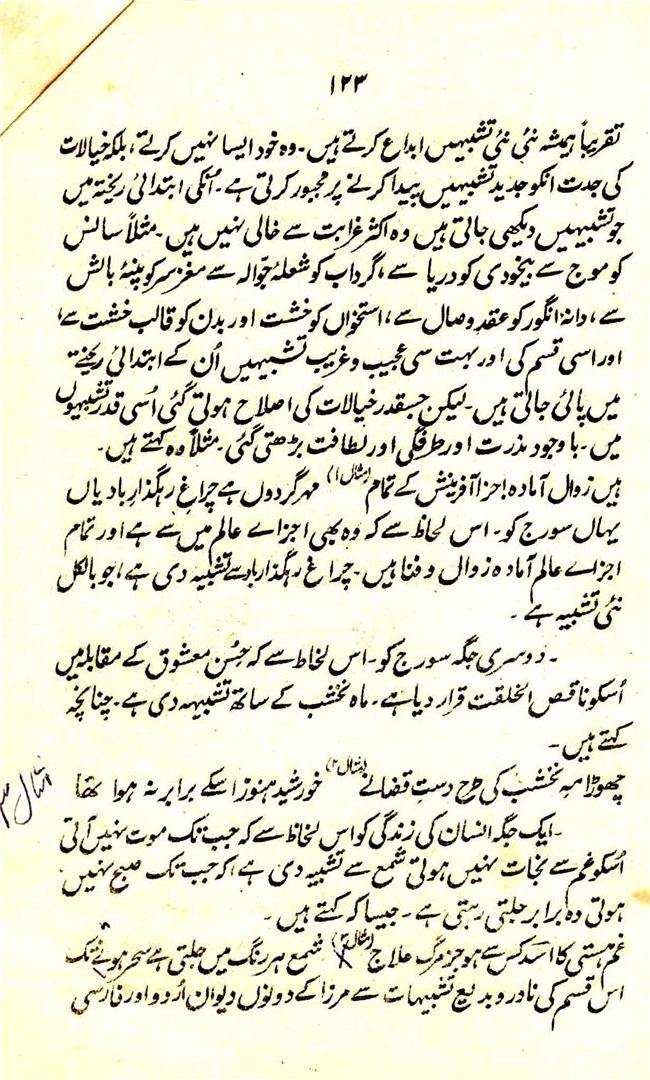 ۱۲۳
تقریباً ہمیشہ نئی نئی تشبیہیں ابداع کرتے ہیں۔ وہ خود ایسا نہیں کرتے، بلکہ خیالات
کی جدت انکو جدید تشبیہیں پیدا کرنے پر مجبور کرتی ہے۔ انکی ابتدائی ریختہ میں
جو تشبیہیں دیکھی جاتی ہیں وہ اکثر غرابت سے خالی نہیں ہیں۔ مثلاً سانس
کو موج سے بیخودی کو دریا سے، گرداب کو شعلۂ جوّالہ سے مغز سر کو پنبۂ بالش
سے، دانۂ انگور کو عقدِ وصال سے، استخواں کو خشت اور بدن کو قالب خشت سے،
اور اسی قسم کی اور بہت سی عجیب و غریب تشبیہیں اُن کے ابتدائی ریختے
میں پائی جاتی ہیں۔ لیکن جسقدر خیالات کی اصلاح ہوتی گئی اُسی قدر تشبیہوں
میں۔ باوجود ندرت اور طرفگی اور لطافت بڑھتی گئی۔ مثلاً وہ کہتے ہیں۔
ہیں زوال آمادہ اجزا آفرینش کے تمام (مثال ۱) مہر گردوں ہے چراغِ رہگذارِ بادیاں
یہاں سورج کو۔ اس لحاظ سے کہ وہ بھی اجزاے عالم میں سے ہے اور تمام
اجزاے عالم آمادہ زوال و فنا ہیں۔ چراغ رہگذار باد سے تشبیہ دی ہے، جو بالکل
نئی تشبیہ ہے۔
۔ دوسری جگہ سورج کو۔ اس لحاظ سے کہ حسن معشوق کے مقابلہ میں
اُسکو ناقص الخلقت قرار دیا ہے۔ ماہ نخشب کے ساتھ تشبیہہ دی ہے۔ چنانچہ
کہتے ہیں۔
چھوڑا مہِ نخشب کی طرح دستِ قضا نے (مثال ۲) خورشید ہنوز اسکے برابر نہ ہوا تھا
مثال ۳
۔ ایک جگہ انسان کی زندگی کو اس لحاظ سے کہ جب تک موت نہیں آتی
اُسکو غم سے نجات نہیں ہوتی شمع سے تشبیہ دی ہے، کہ جب تک صبح نہیں
ہوتی وہ برابر جلتی رہتی ہے۔ جیسا کہ کہتے ہیں۔
غم ہستی کا اسدؔ کس سے ہو جز مرگ علاج (مثال ۳) شمع ہر رنگ میں جلتی ہے سحر ہونے تک
اس قسم کی نادر و بدیع تشبیہات سے مرزا کے دونوں دیوان اُردو اور فارسی